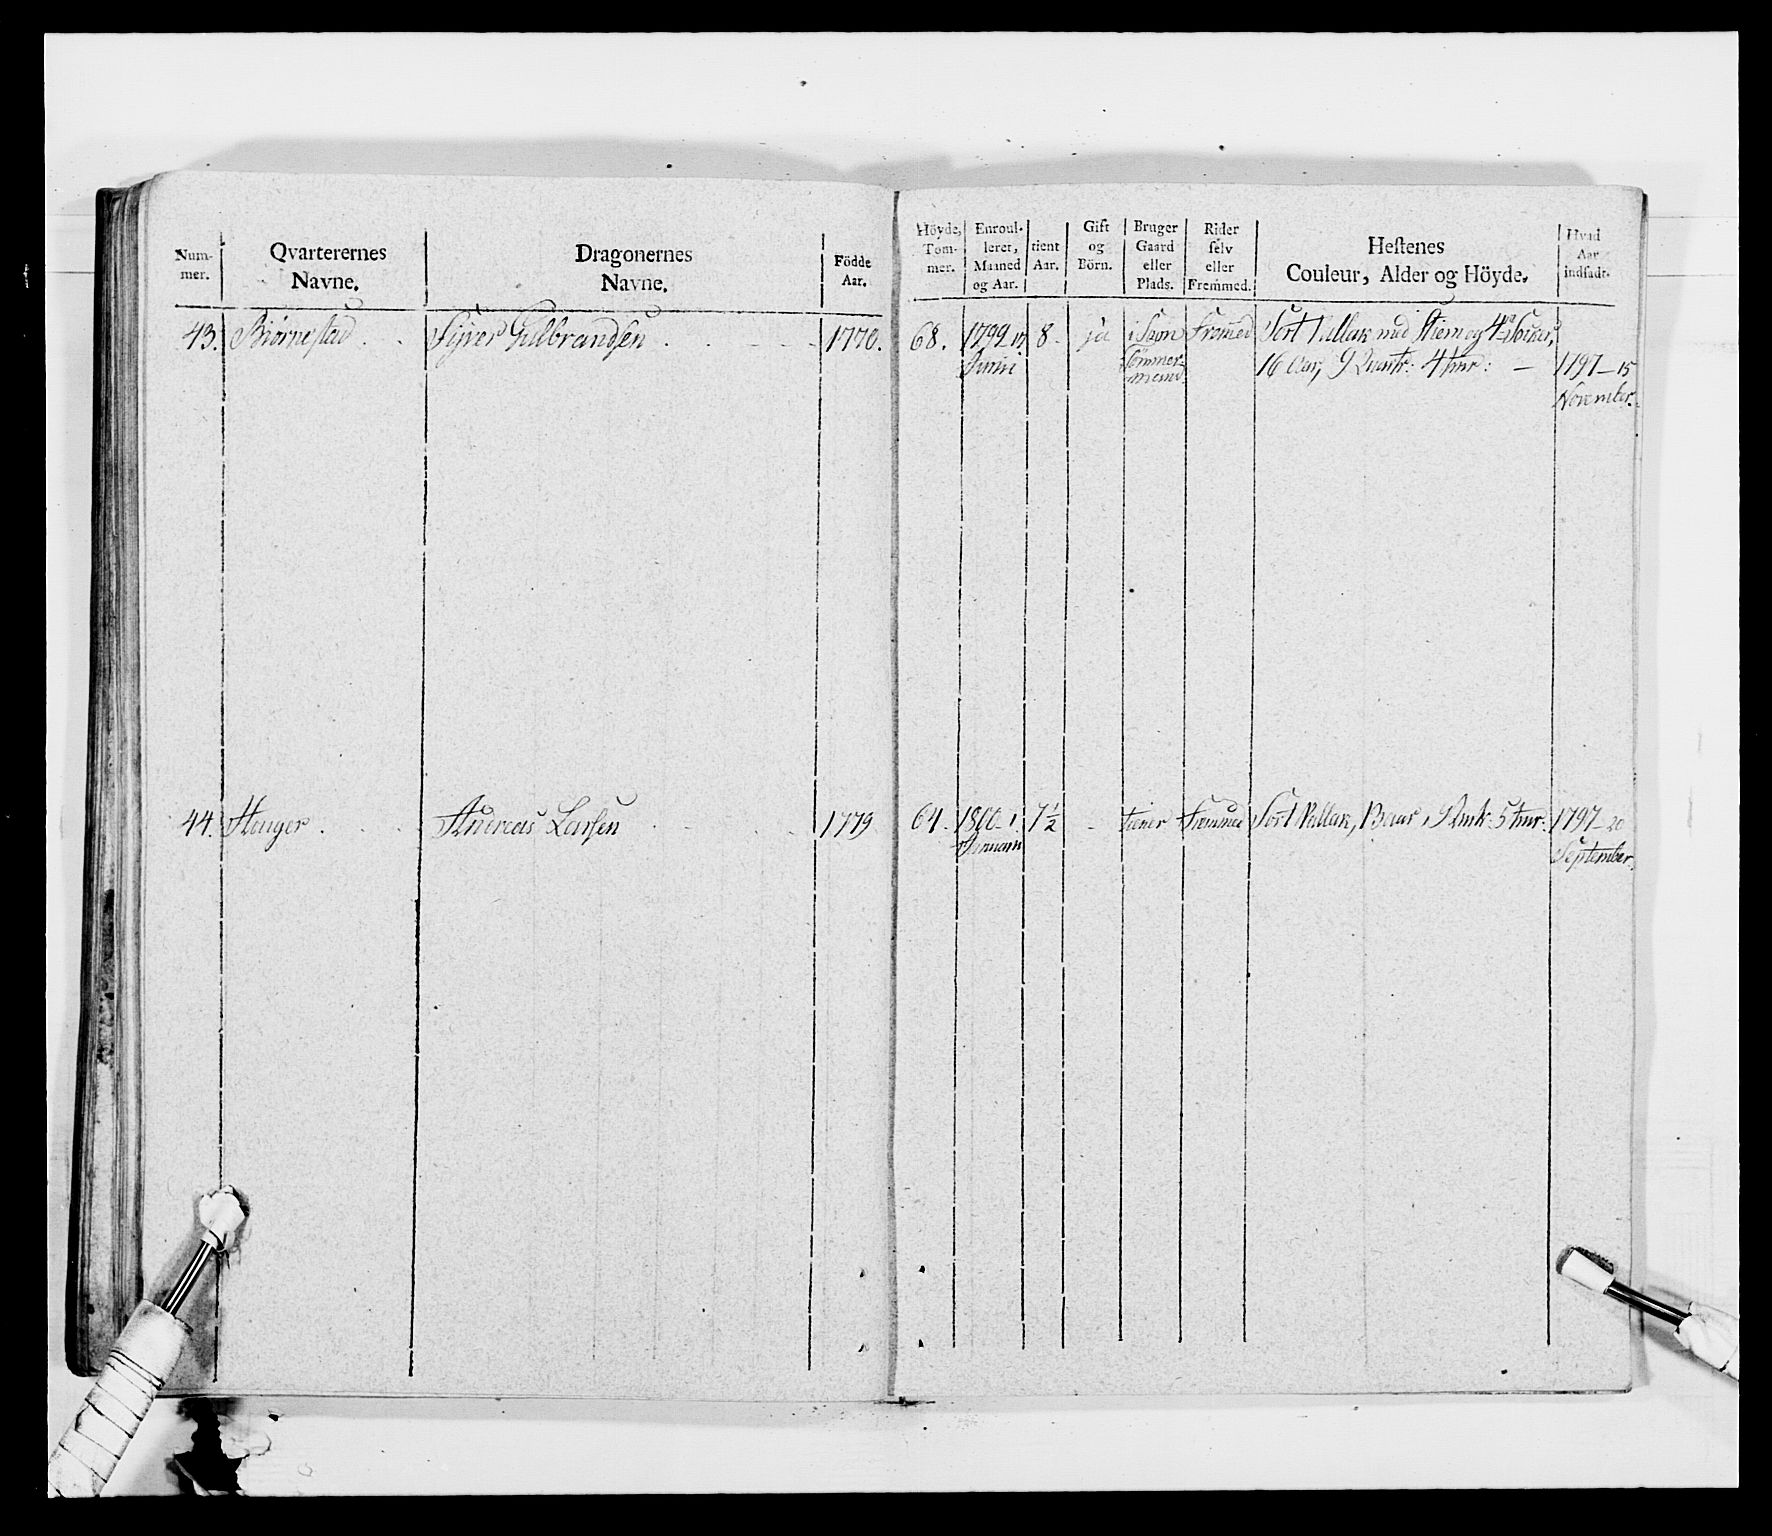 Num-
mer.
Qvarterernes
Navne.
Dragonernes
Navne.
Födde
Aar.
Höyde,
Tom-
mer.
Enroul-
leret,
Maaned
og Aar.
tient
Aar.
Gift
og
Börn.
Bruger
Gaard
eller
Plads.
Rider
ſelv
eller
Fremmed.
Heſtenes
Couleur, Alder og Höyde.
Hvad
Aar
indſadt.
43. Biørnestad Syver Gulbrandsen 1770. 68. 1792 17 8. ja Fremed Sort Vallak med Stiern og
Junii 16 Aar, 9 Quart: 4 tmr: — 1797 — 15
November.
44. Andreas Larsen 1779 64. 1800 1. 7½ tiener Fremmed Sort Vallak, 5 tmr: 1797 — 20
Januarii September.